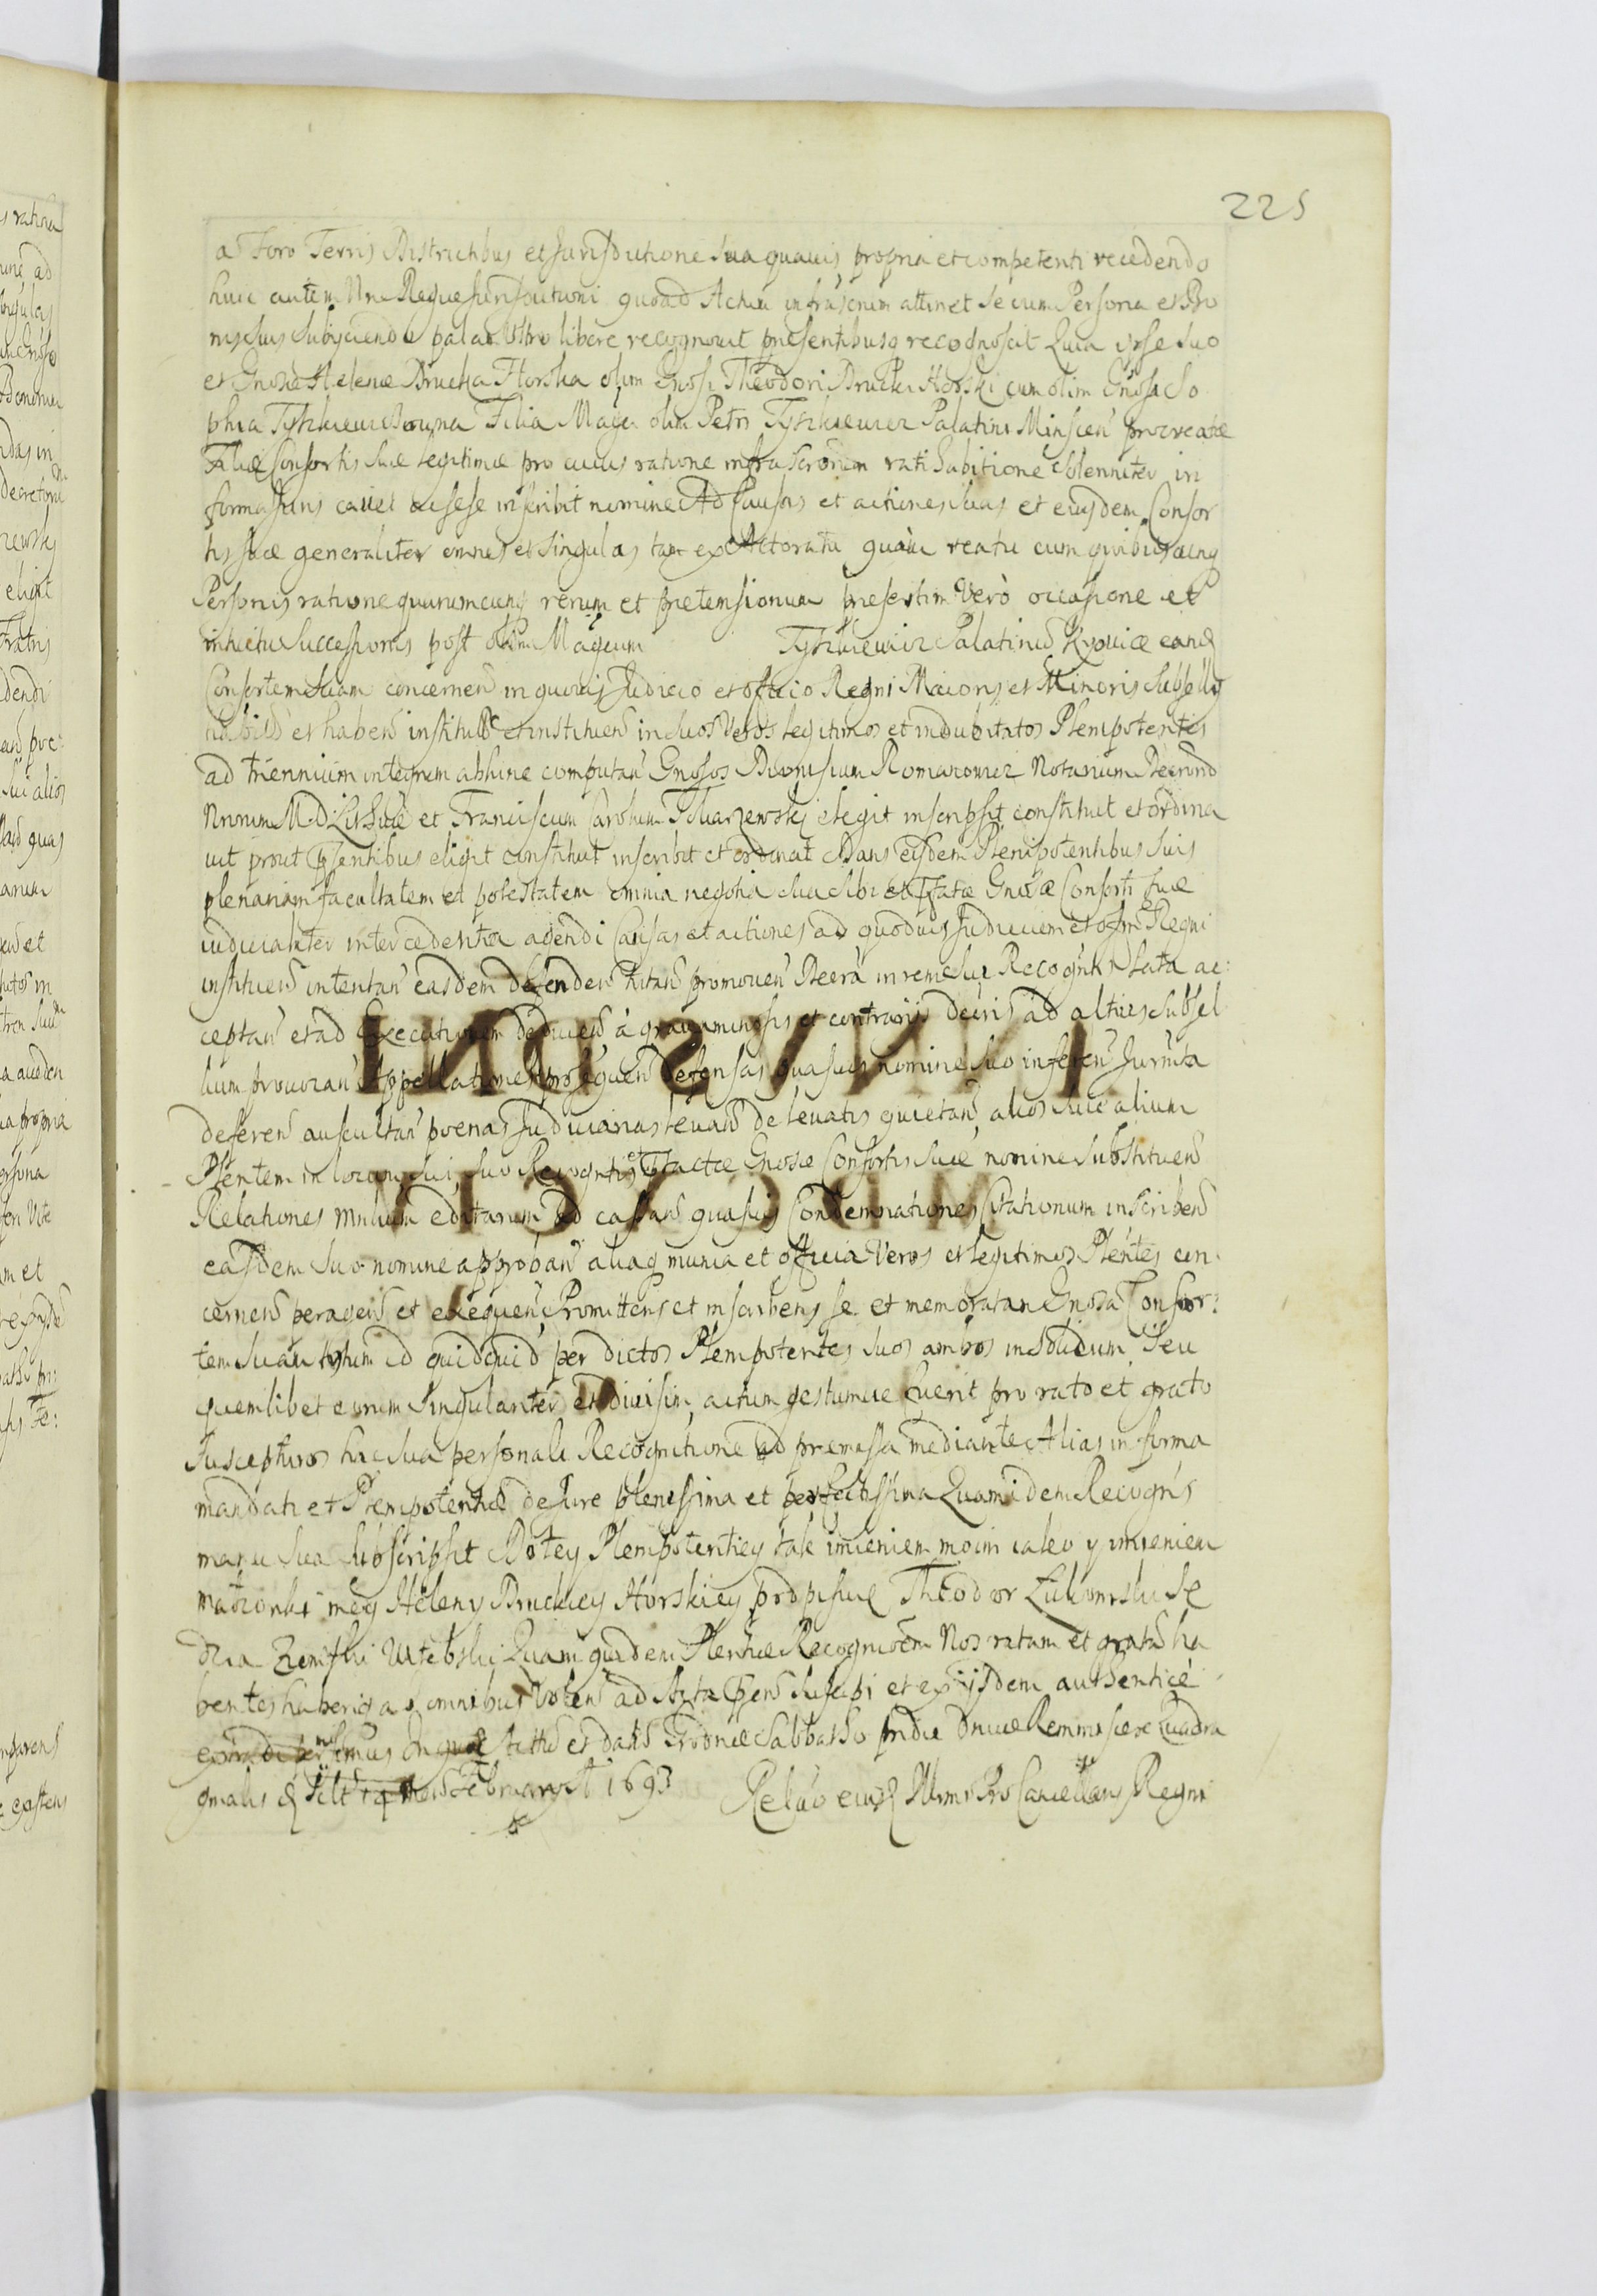 225
a Foro Terris Districtibus et Jurisdictione sua quavis propria et competenti recedendo
huic autem Nrae Regiae Jurisdictioni quoad Actum infrascriptum attinet se cum Persona et Bo
nis suis subijciendo palam libere recognovit presentibusq recognoscit Quia ipse suo
et Gnosa Helenae Drucka Horska olim Gnosi Theodori Drucki Horski cum olim Gnosa So
phia Tyszkiewiczowna Filia Magci olim Petri Tyszkiewicz Palatini Minscen procreatae
Filiae Consortis suae legitimae pro cuius ratione infrascriptorum rati habitione solenniter in
forma Juris cavet ac sese inscribit nomine Ad Causas et actiones suas et eiusdem Consor
tis suae generaliter omnes et singulas tam ex Actoratu quam reatu cum quibuscunq
Personis ratione quarumcunq rerum et pretensionum presertim verò occasione et
intuitu Successionis post olim Magcum Tyszkiewicz Palatinum Kyoviae eand
Consortem suam concernen in quovis Judicio et officio Regni Maioris et Minoris Subsellij
habitas et haben institutas et instituen in suos veros legitimos et indubitatos Plenipotentes
ad triennium integrum abhinc computan Gnosos Dionisium Romanowicz Notarium Decretor
Nrorum M. D. Lithuae et Franciscum Carolum Tchiarzewski elegit inscripsit constituit et ordina
vit prout presentibus eligit constituit inscribit et ordinat Dans eisdem Plenipotentibus suis
plenariam facultatem et potestatem omnia negotia sua sibi et pfatae Gnosae Consorti suae
iudicialiter intercedentia agendi Causas et actiones ad quodvis Judicium et offm Regni
instituen intentan easdem defenden citan promoven Decreta in rem sui Recognitis lata ac:
ceptan et ad Executionem deducen à gravaminosis et contrariis decris ad altius Subsel
lium provocan Appellationes prosequen defensas quasvis nomine suo inferen Jurmta
deferen auscultan poenas Judiciarias levan de levatis quietan alios sive alium
Plentem in locum sui, suo Recogntis et pfactae Gnosae Consortis suae nomine substituen
Relationes Mnlium editarum ad cassan quasvis Condemnationes Citationum inscriben
easdem suo nomine approban aliaq munia et officia Veros et legitimos Plentes con
cernen peragen et exequen Promittens et inscribens se et memoratam Gnosa Consor:
tem suam totum id quidquid per dictos Plenipotentes suos ambos in solidum seu
quemlibet eorum singulariter et divisim actum gestumve fuerit pro rato et grato
suscepturos hac sua personali Recognitione ad premissa mediante Alias in forma
mandati et Plenipotentiae de Jure plenissima et perfectissima Quam idem Recogns
manu sua subscripsit Do tey Plenipotentiey tak imieniem moim iako y imieniem
małzonki mey Heleny Druckiey Horskiey podpisuię Theodor Lukomski Sę
dzia Ziemski Witebski Quam quidem Plentiae Recognitionem Nos ratam et gratam ha
bentes haberiq ab omnibus volen ad Acta pren suscepi et ex ijsdem authenticè
extradi permisimus Actum et datum Grodnae Sabbatho pridie Dnicae Reminiscere Quadra
gmalis Februarij A 1693 Relao eiusd Illmi Pro Cancellarij Regni